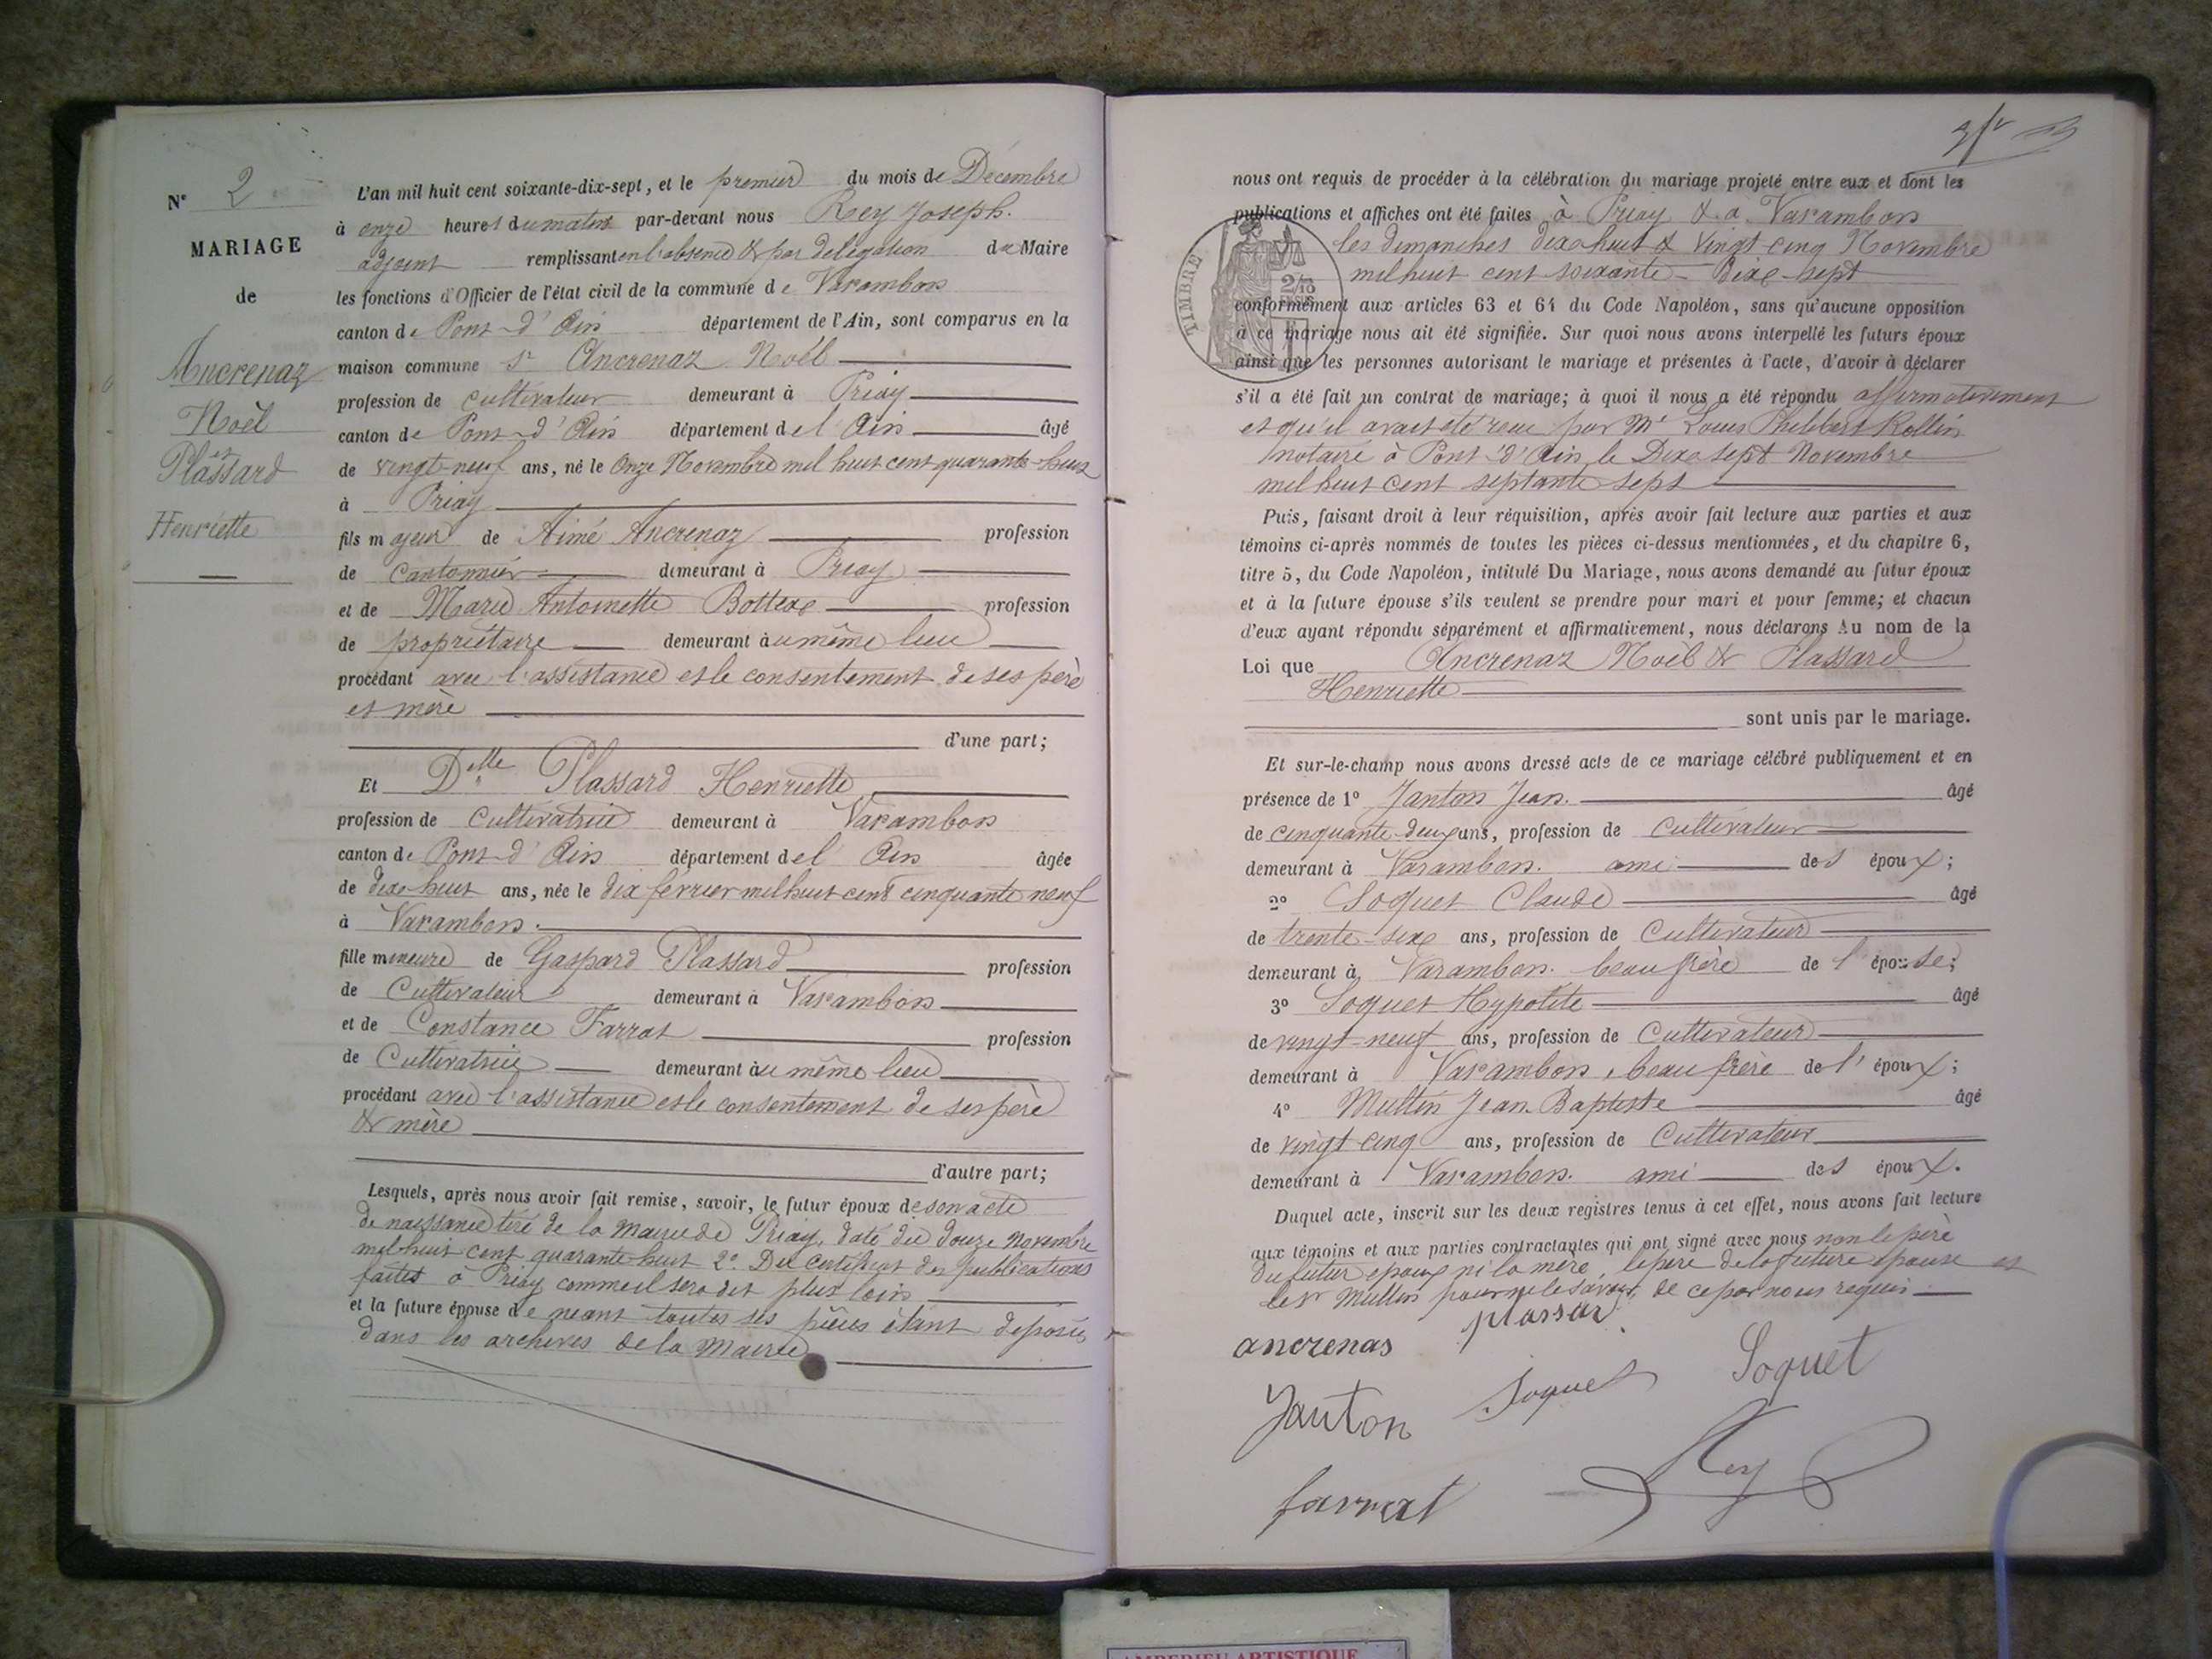 N° 2
MARIAGE
de
Ancrenaz
Noël
et
Plassard
Henriette
L'an mil huit cent soixante-dix-sept, et le premier du mois de Décembre
à onze heures du matin par-devant nous Rey Joseph.
adjoint remplissant en l'absence & par délégation du Maire
les fonctions d'Officier de l'état civil de la commune de Varambon
canton de Pont-d'Ain département de l'Ain, sont comparus en la
maison commune Sr Ancrenaz Noël
profession de cultivateur demeurant à Priay
canton de Pont-d'Ain département de l'Ain âgé
de vingt-neuf ans, né le Onze Novembre mil huit cent quarante-huit
à Priay
fils majeur de Aimé Ancrenaz profession
de cantonnier demeurant à Priay
et de Marie Antoinette Bottex profession
de propriétaire demeurant au même lieu
procédant avec l'assistance et le consentement de ses père
et mère
d'une part;
Et Delle Plassard Henriette
profession de Cultivatrice demeurant à Varambon
canton de Pont-d'Ain département de l'Ain âgée
de dixe huit ans, née le dix février mil huit cent cinquante neuf
à Varambon.
fille mineure de Gaspard Plassard profession
de Cultivateur demeurant à Varambon
et de Constance Farrat profession
de Cultivatrice demeurant au même lieu
procédant avec l'assistance et le consentement de ses père
& mère
d'autre part;
Lesquels, après nous avoir fait remise, savoir, le futur époux de son acte
de naissance tiré de la mairie de Priay, daté du douze Novembre
mil huit cent quarante huit 2° Du certificat des publications
faites à Priay comme il sera dit plus loin
et la future épouse de néant toutes ses pièces étant déposées
dans les archives de la Mairie
nous ont requis de procéder à la célébration du mariage projeté entre eux et dont les
publications et affiches ont été faites à Priay & à Varambon
les dimanches dixe huit & vingt cinq Novembre
mil huit cent soixante-Dixe-sept
TIMBRE
2/10
conformément aux articles 63 et 64 du Code Napoléon, sans qu'aucune opposition
à ce mariage nous ait été signifiée. Sur quoi nous avons interpellé les futurs époux
ainsi que les personnes autorisant le mariage et présentes à l'acte, d'avoir à déclarer
s'il a été fait un contrat de mariage; à quoi il nous a été répondu affirmativement
et qu'il avait été reçu par Me Louis Philibert Rollin
notaire à Pont-d'Ain le Dixe sept Novembre
mil huit cent septante sept
Puis, faisant droit à leur réquisition, après avoir fait lecture aux parties et aux
témoins ci-après nommés de toutes les pièces ci-dessus mentionnées, et du chapitre 6,
titre 5, du Code Napoléon, intitulé Du Mariage, nous avons demandé au futur époux
et à la future épouse s'ils veulent se prendre pour mari et pour femme; et chacun
d'eux ayant répondu séparément et affirmativement, nous déclarons Au nom de la
Loi que Ancrenaz Noël & Plassard
Henriette
sont unis par le mariage.
Et sur-le-champ nous avons dressé acte de ce mariage célébré publiquement et en
présence de 1° Janton Jean. âgé
de cinquante-deux ans, profession de Cultivateur
demeurant à Varambon. ami des époux;
2° Soquet Claude âgé
de trente-sixe ans, profession de Cultivateur
demeurant à Varambon. beau frère de l'épouse;
3° Soquet Hypolite âgé
de vingt-neuf ans, profession de Cultivateur
demeurant à Varambon, beau frère de l'époux;
4° Multin Jean Baptiste âgé
de vingt cinq ans, profession de Cultivateur
demeurant à Varambon. ami des époux.
Duquel acte, inscrit sur les deux registres tenus à cet effet, nous avons fait lecture
aux témoins et aux parties contractantes qui ont signé avec nous non le père
du futur époux ni la mère, le père de la future épouse et
le sr Multin pour ne le savoir, de ce par nous requis
ancrenas plassar
Janton Soquet Soquet
farrat Rey
AMBERIEU ARTISTIQUE